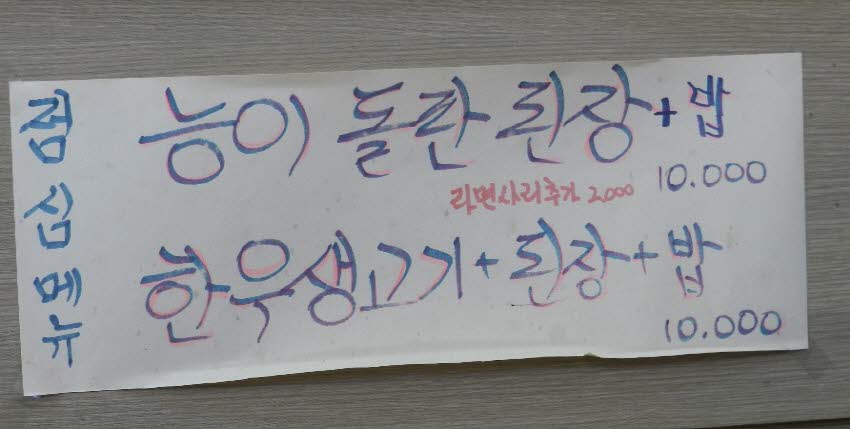 점심메뉴
능이 돌판 된장+밥
10.000
라면사리추가 2,000
한우생고기+된장+밥
10.000